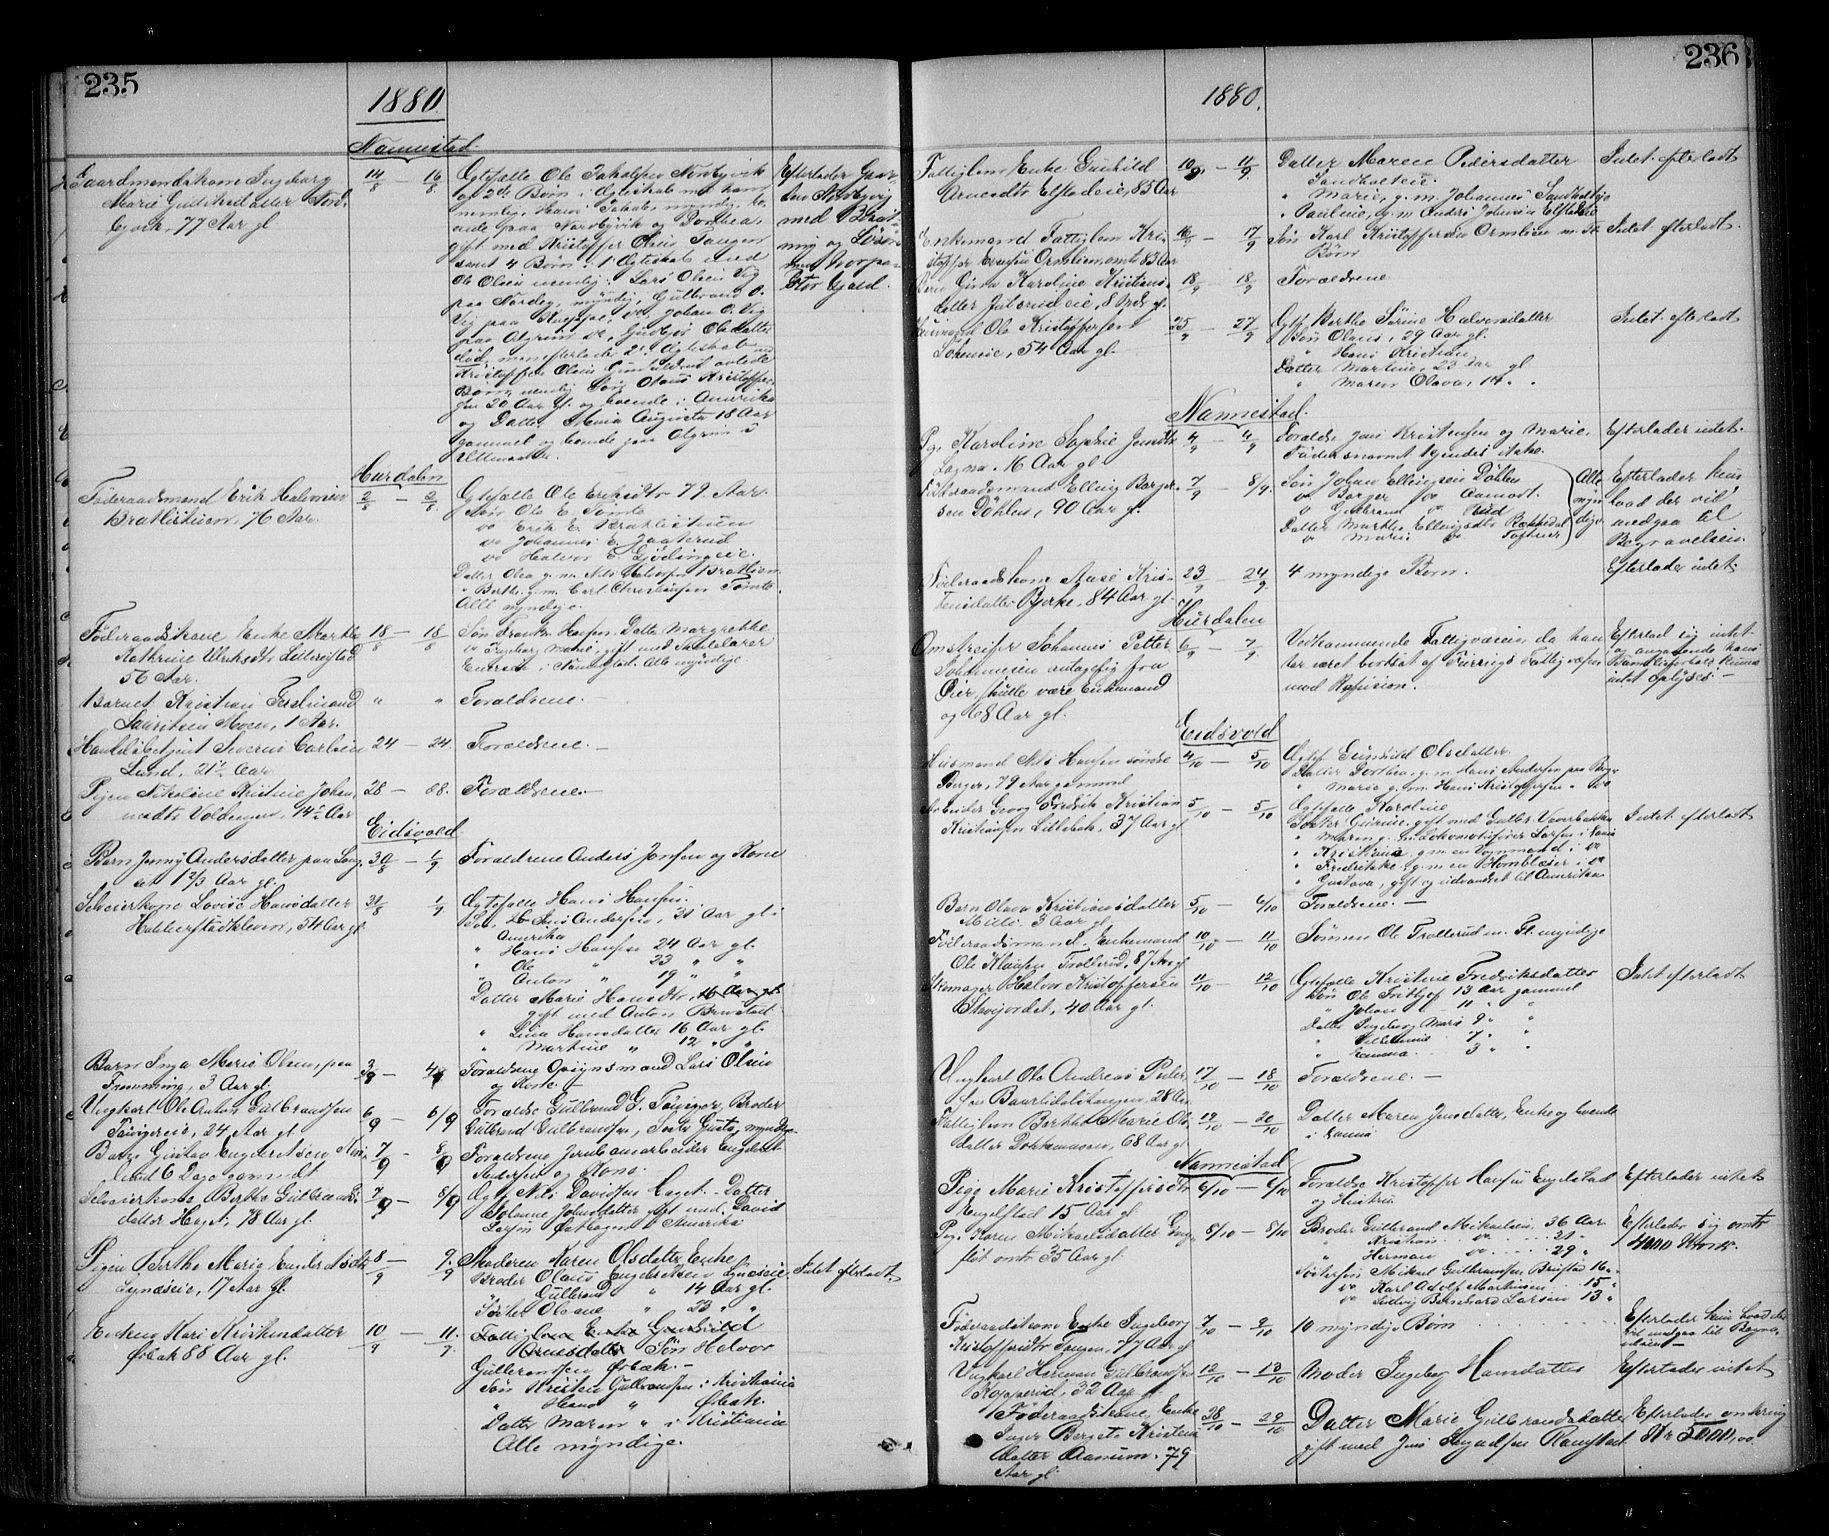 235
1880.
Nannestad.
Gaardmandskone Ingeborg
Marie Gulbrandsdatter Nord-
byvik, 77 Aar gl
14/8 — 16/8
Ægtefælle Ole Jakobsen Nordbyvik
af 2det Børn i Ægteskab med ham
nemlig, Hans Jakob, myndig, bo-
ende paa Nordbyvik og Dorthea,
gift med Kristoffer Olsen Tangen
samt 4 Børn i 1 Ægteskab med
Ole Olsen nemlig: Lars Olsen Vig
paa Nordby, myndig, Gulbrand O.
Vig paa do, Johan O. Vig
paa Algrim do, Olsdatter
død, men efterlader 2 i Ægteskab med
Kristoffer Olsen avlede
Børn, nemlig Søn Olaus Kristoffer-
sen 20 Aar gl. og boende i Amerika
og Datter Maria Augusta 18 Aar
gammel og boende paa Algrim i
Ullensaker.
Efterlader Gaar-
den Nordbyvik
med Besæt-
ning og Løsøre
men hvorpaa
stor Gjæld.
Hurdalen
Føderaadsmand Erik Halvorsen
Bratlistuen, 76 Aar.
2/8 — 2/8
Ægtefælle Ole Eriksdtr 79 Aar.
Søn Ole E. Tømte
do Erik E. Bratlistuen
do Johannes E. Jaaterud
do Halvor E. Gjødingeie.
Datter Olea g. m. Nils Halvorsen Bratlien
" Berthe g. m. Carl Christiansen Tømte.
Alle myndige.
Føderaadskone Enke Marthe
Kathrine Ulriksdtr
56 Aar.
18 — 18/8
Søn Frants Hansen. Datter Margrethe
do Ingeborg Marie, gift med Skolelærer
i Nannestad. Alle myndige.
Barnet Kristian Ferdinand
Lauritsen Moen, 1 Aar.
" "
Forældrene.
Handelsbetjent Severin Carlsen
Lund, 21½ Aar
24 — 24.
Forældrene. —
Pigen Nikoline Kristine Johan-
nesdtr Voldengen, 14½ Aar
28 — 28.
Forældrene. —
Eidsvold
Barn Jenny Andersdatter paa Lang-
set 1 2/3 Aar gl.
30/8 — 1/9
Forældrene Anders Jensen og Kone
Selveierkone Lovise Hansdatter
Habberstadkleven, 54 Aar gl.
31/8 — 1/9
Ægtefælle Hans Hansen.
Søn Andersen, 31 Aar gl i
Amerika
" Hans Hansen 24 Aar gl.
" Ole " 23 " "
" Anton " 19 " "
Datter Marie Hansdtr, 16 Aar gl.
gift med Anton
" Lina Hansdatter 16 Aar gl.
" Martine " 12 " "
Barn Inga Marie Olsen, paa
Finnvang, 3 Aar gl.
3/9 — 4/9
Forældrene Opsynsmand Lars Olsen
og Kone. —
Ungkarl Ole Anton Gulbrandsen
Tøvigereie, 24 Aar gl
6/9 — 6/9
Forældre Gulbrand G. Tøviger, Broder
Gulbrand Gulbrandsen, Søster Gusta, myndige
Barn Gustav Engebretsen Min-
6 Dage gammelt
7/9 — 8/9
Forældrene Jernbanearbeider Engebret
Andersen og Kone.
Selveierkone Berthe Gulbrands-
datter Haget, 78 Aar gl.
7/9 — 8/9
Ægtf. Nils Davidsen Haget. Datter
gift med David
Larsen i Amerika
Pigen Berthe Marie Engebretsdtr
Lynæseie, 17 Aar gl.
8/9 — 9/9
Moderen Karen Olsdatter Enke
Broder Olaus Engebretsen Lynæseie
" Gulbrand " 14 Aar gl.
Søster Oleane " 23 " "
Intet efterladt.
Enken Kari Kristensdatter
Ørbæk 88 Aar gl.
10/9 — 11/9
Fattiglem Enke Gunhild
Arnesdatter Søn Halvor
Gulbrandsen Ørbæk. —
Søn Kristen Gulbrandsen i Kristiania
" Hans " Ørbæk.
Datter Maren " i Kristiania
Alle myndige.
236
1880.
Fattiglem Enke Gunhild
Arnesdtr Elstadeie, 85 Aar
10/9 — 11/9
Datter Maren Pedersdatter
Sandholteie.
" Marie, g. m. Johannes Sandholteie
" Pauline, g. m. Anders Johnsen Elstadeie
Intet efterladt
Enkemand Fattiglem Kri-
stoffer Ormlien, omtr 83 Aar
16/9 — 17/9
Søn Karl Kristoffersen Ormlien m. fl.
Børn
Intet efterladt.
Barn Ginea Karoline Kristians-
datter Julsrudeie, 8 Mdr gl.
18/9 — 18/9
Forældrene
Husmand Ole Kristoffersen
, 54 Aar gl.
25/9 — 27/9
Ægtf. Berthe Sørine Halvorsdatter
Søn Olaus, 29 Aar gl.
" Hans Kristian
Datter Martine, 23 Aar gl
" Maren Olava, 14 " "
Intet efterladt
Nannestad.
Pg. Karoline Sophie Jensdtr
Logna. 16 Aar gl.
4/9 — 4/9
Forældre Jens Kristensen og Marie.
Fødersnavnet kjendes ikke.
Efterlader intet.
Føderaadsmand Elling Borger-
sen Døhlen, 90 Aar gl.
7/9 — 8/9.
Søn Johan Ellingsen Døhlen
do Borger do Aamodt.
do Gulbrand do Rud
Datter Marthe Ellingsdtr Bækkedal
do Marie do Toftner
Alle
myn-
dige
Efterlader kun
hvad der vil
medgaa til
Begravelsen.
Føderaadskone Aase Kris-
tensdatter Bjerke, 84 Aar gl.
23/9 — 24/9
4 myndige Børn.
Efterlader intet
Hurdalen
Omstreifer Johannes Petter
antagelig fra
Øier skulle være Enkemand
og 68 Aar gl.
6/9 — 7/9
Vedkommende Fattigvæsen, da han
har været bortsat af Feirings Fattigvæsen
med Refusion.
Efterlod sig intet
og angaaende hans
Familieforhold kunne
intet oplyses —
Eidsvold
Husmand Nils Hansen søndre
Berger, 79 Aar gammel
4/10 — 5/10
Ægtf Gunhild Olsdatter.
Datter Dorthea, g. m. Hans Andersen paa Berg
" Marie g. m. Hans Kristoffersen " do
Arbeider Georg Fredrik Kristian
Kristiansen Lillebæk, 37 Aar gl
5/10 — 5/10
Ægtefælle Karoline
Søster Gurine, gift med Gulbr. Vaarbækken
" Maren g. m. Lokomotivfører Larsen i Xania
" Kristiane, g. m. en Vognmand i do
" Fredrikke g. m. en Hornblæser i do
" Gustava, gift og udvandret til Amerika
Intet efterladt
Barn Olava Kristiansdatter
Mille, 3 Aar gl
5/10 — 6/10
Forældrene. —
Føderaadsmand. Enkemand
Ole Klausen Trollerud, 87 Aar gl
10/10 — 11/10
Sønnen Ole Trollerud m. fl. myndige
Skomager Halvor Kristoffersen
Stavjordet, 40 Aar gl.
11/10 — 12/10
Ægtefælle Kristine Fredriksdatter
Søn Ole Fritjof 13 Aar gammel
" Johan 11 " "
Datter Ingeborg Marie 9 " "
" Vilhelmine 7 " "
" Hanna 3 " "
Intet efterladt
Ungkarl Ole Andreas Peder-
sen Baarlidalstangen, 28 Aar
17/10 — 18/10
Forældrene. —
Fattiglem Berthe Marie Ols-
datter Dokkemoen, 68 Aar gl
19/10 — 20/10
Datter Maren Jensdatter, Enke og boende
i Xania
Nannestad
Pige Marie Kristoffersdtr
Engelstad 15 Aar gl
6/10 — 6/10
Forældre Kristoffer Hansen Engelstad
og Hustru
Efterlader intet
Pg. Karen Mikaelsdatter Eng-
fløt omtr 35 Aar gl
8/10 — 8/10
Broder Gulbrand Mikaelsen, 36 Aar
" Kristian do 31 "
" Herman do 29 "
Søstersøn Mikael Gulbrandsen 16 "
do Karl Adolf Martinsen 15 "
do Ludvig Bernhard Larsen 13 "
Efterlader sig omtr
4000 Kroner.
Føderaadskone Enke Ingeborg
Kristoffersdtr Tangen, 77 Aar gl
7/10 — 9/10
10 myndige Børn
Efterlader kun hvad der
vil medgaa til Begra-
velsen —
Ungkarl Herman Gulbrandsen
Kopperud, 32 Aar gl
12/10 — 13/10
Moder Ingeborg Hansdatter
Efterlader intet
Føderaadskone, Enke
Inger Bergete Kristens
datter Aamum. 79
Aar gl
28/10 — 29/10
Datter Marie Gulbrandsdatter
gift med Jens Ramstad.
Efterlader omkring
Kr 5000,00